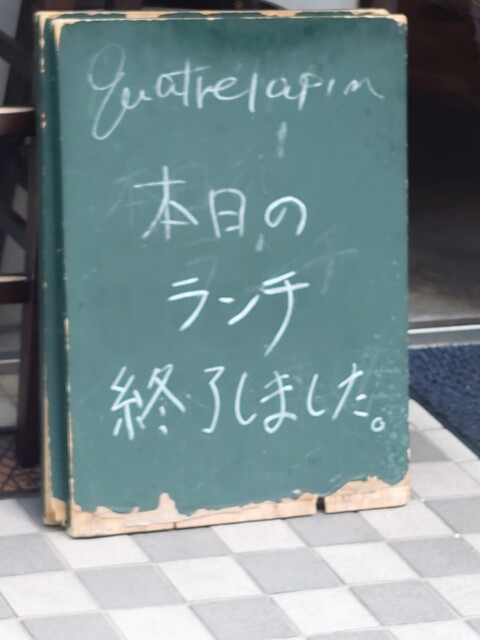 quatre lapin
本日の
ランチ
終了しました。